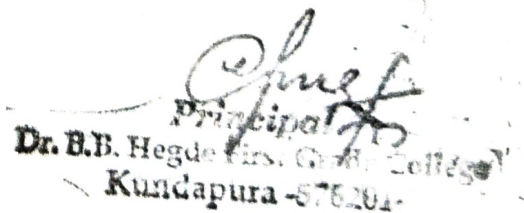 Principal
Dr. B.B. Hegde First Grade College
Kundapura -576201-